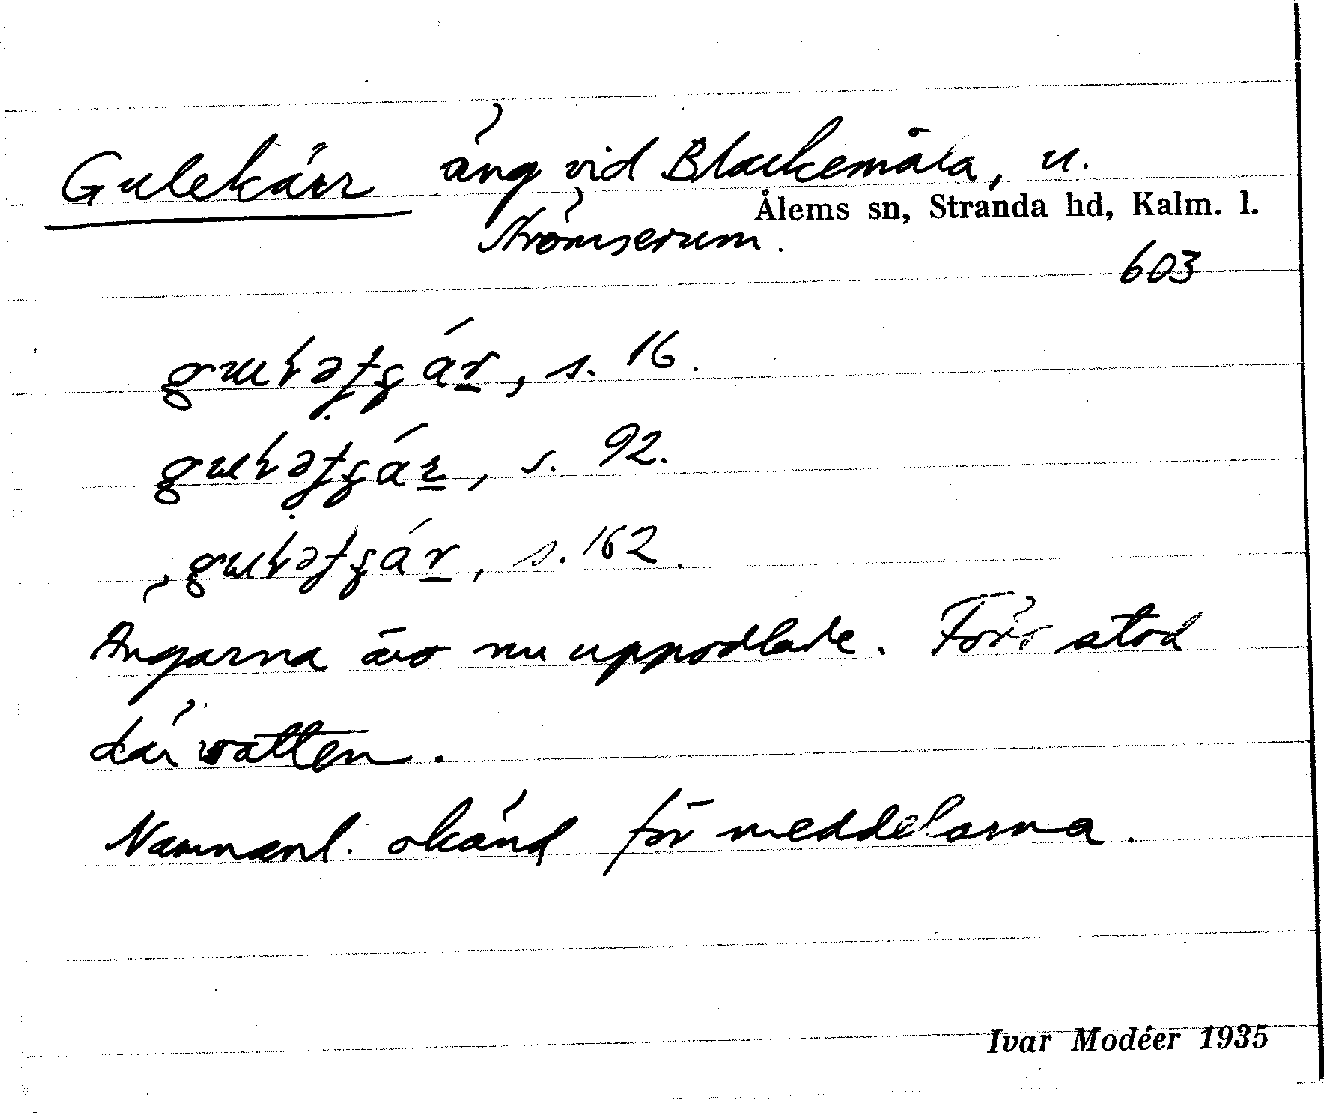 Gulekärr äng vid Blackemåla, u.
Ålems sn, Stranda hd, Kalm. l.
Strömserum.
603
s. 16.
s. 92.
s. 162.
Ängarna äro nu uppodlade. Förr stod
där vatten.
Namnanl. okänd för meddelarna.
Ivar Modéer 1935